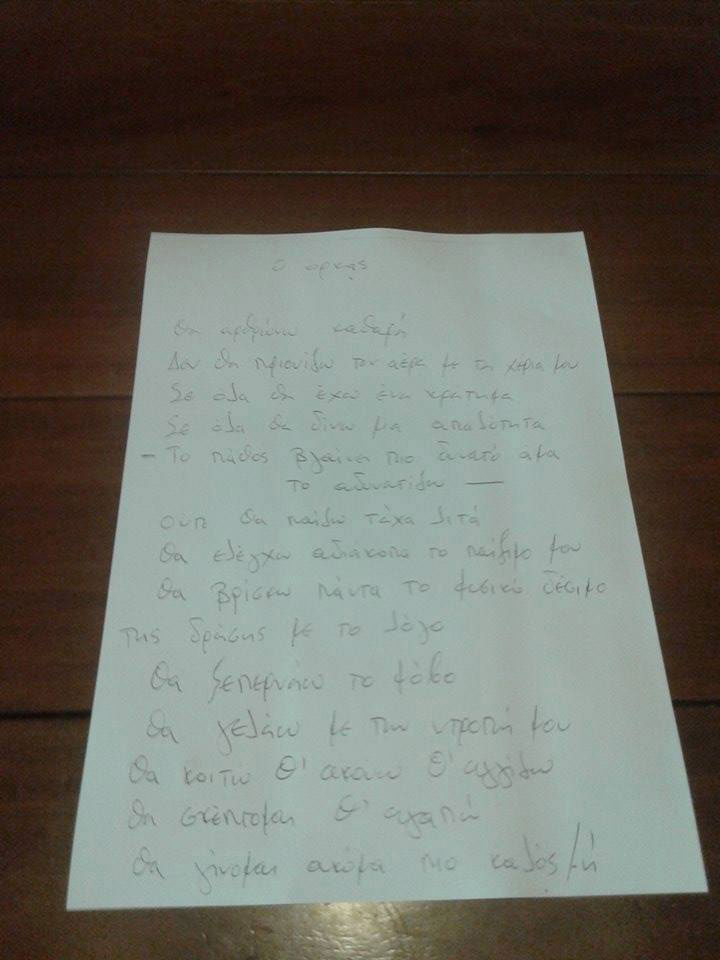 Ο όρκος
Θα αρθρώνω καθαρά
Δεν θα πριονίζω τον αέρα με τα χέρια μου
Σε όλα θα έχω ένα κράτημα
Σε όλα θα δίνω μια απαλότητα
- Το πάθος βγαίνει πιο δυνατό άμα
το αδυνατίζω —
ούτε θα παίζω τάχα λιτά
Θα ελέγχω αδιάκοπα το παίξιμο μου
Θα βρίσκω πάντα το φυσικό δέσιμο
της δράσης με το λόγο
Θα ξεπερνάω το φόβο
Θα γελάω με την ντροπή μου
Θα κοιτώ Θ' ακούω Θ' αγγίζω
Θα σκέπτομαι Θ' αγαπώ
Θα γίνομαι ακόμα πιο καλός/ή